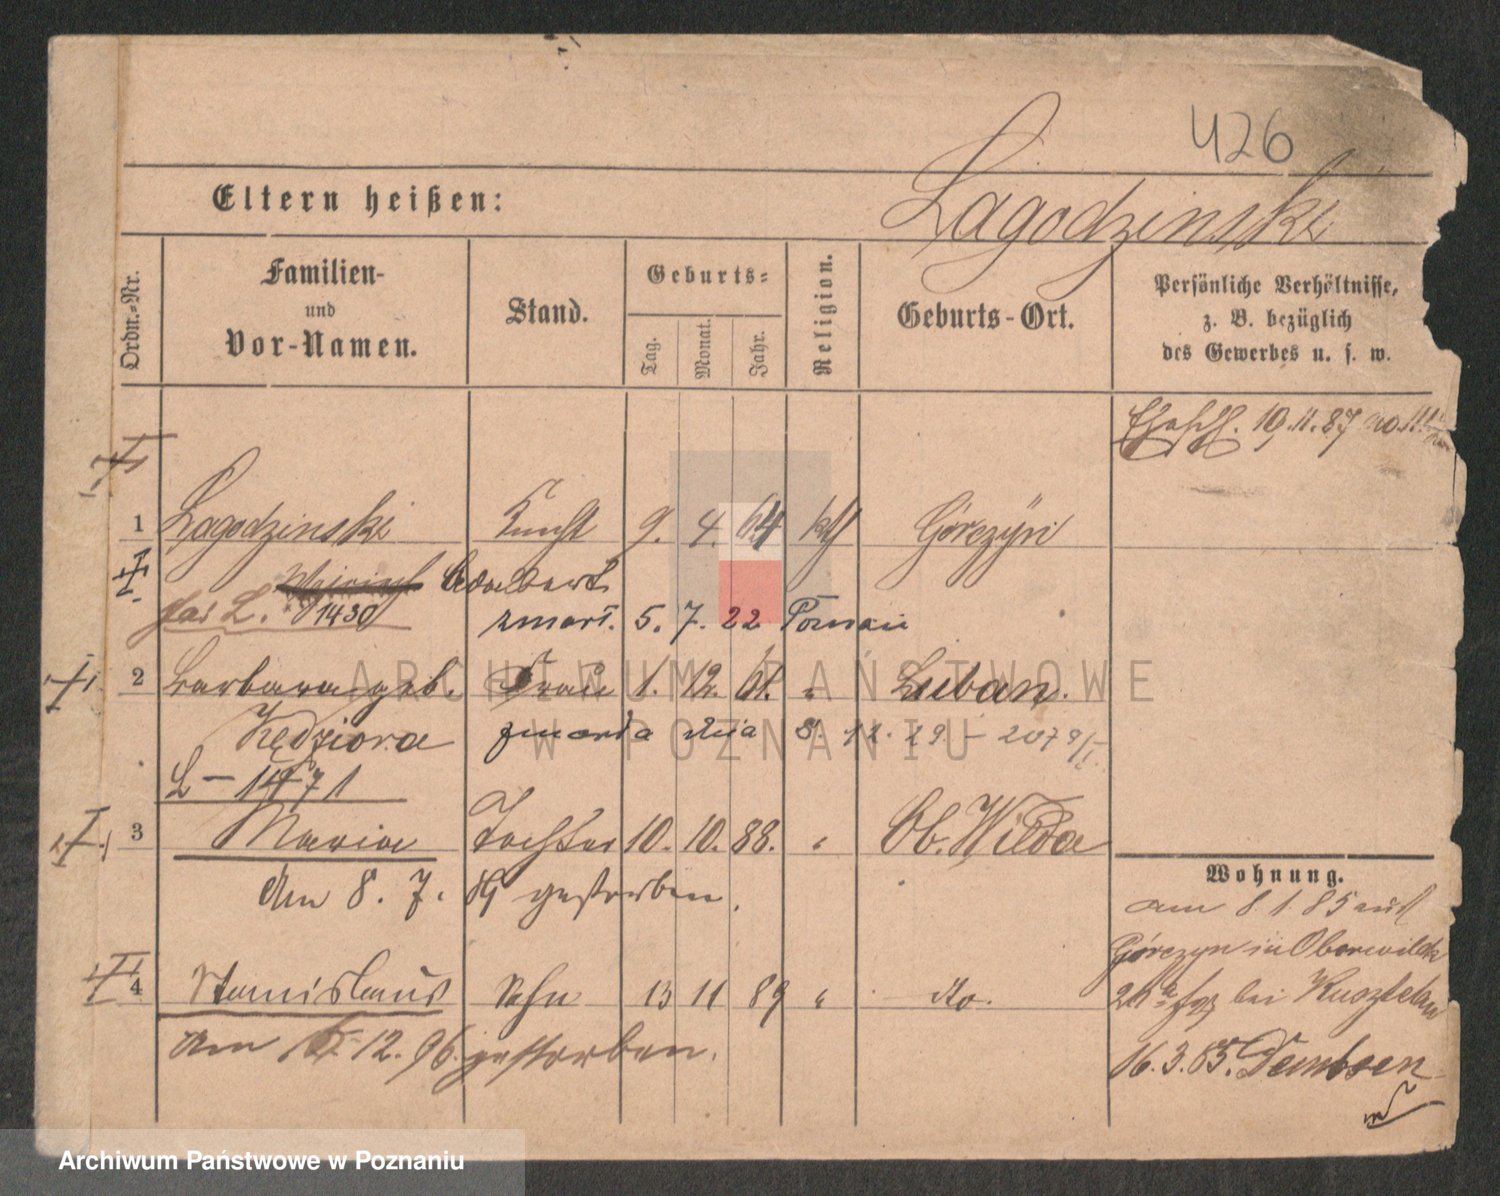 426
Eltern heißen:
Lagodzinski
Ordn.-Nr.
Familien-
und
Vor-Namen.
Stand.
Geburts-
Tag.
Monat.
Jahr.
Religion.
Geburts-Ort.
Persönliche Verhältnisse,
z. B. bezüglich
des Gewerbes u. s. w.
19.11.87
1 Lagodzinski Knecht 9. 4. 64 kth Górczyn
Adalbert
L. 1430 zmarł. 5. 7. 22 Poznań
2 Barbara geb. Frau 1. 12. 61. " Luban.
Kędziora zmarła dnia 8. 12. 29 - 2079/I
L - 1471
3 Maria Tochter 10. 10. 88. " Ob. Wilda
Am 8. 7. 89 gestorben.
4 Stanislaus Sohn 13 11 89 " do.
Am 12. 96. gestorben.
Wohnung.
am 8.1.85 aus
Górczyn in Oberwilda
bei
16.3.85. Dembsen
ARCHIWUM PAŃSTWOWE
W POZNANIU
Archiwum Państwowe w Poznaniu